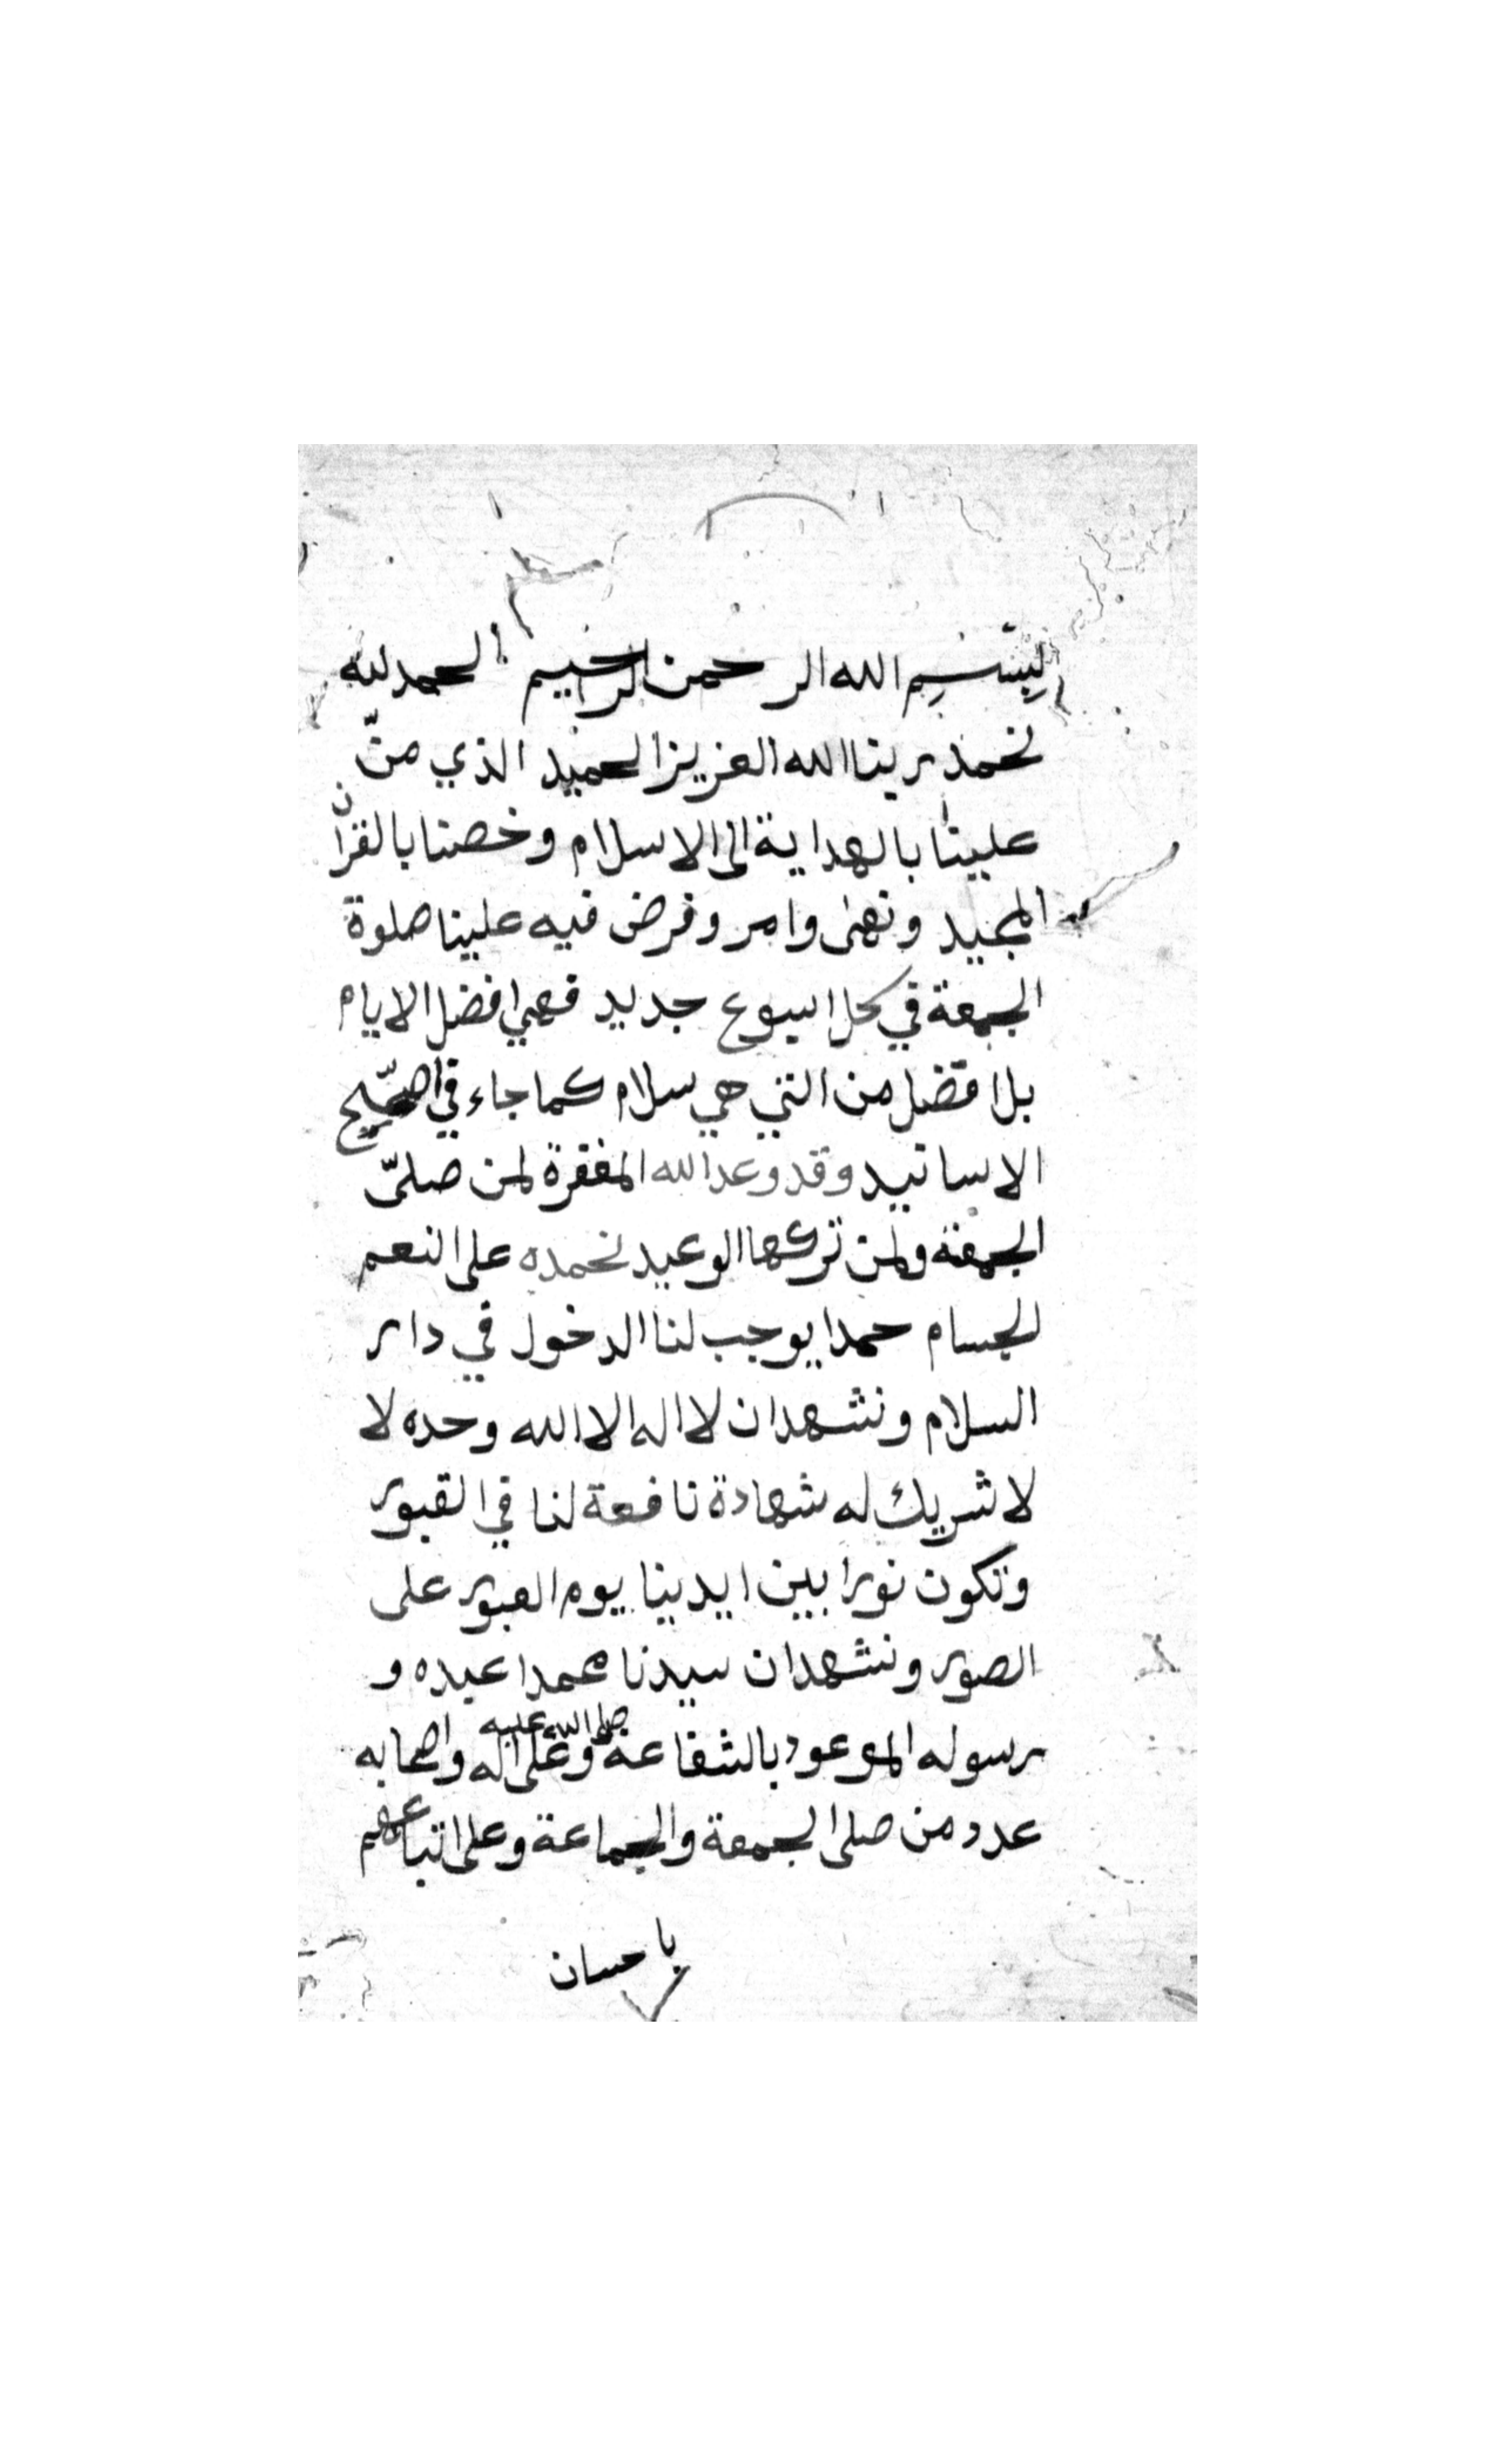 بِسْمِ الله الرحمن الرحيم الحمد لله
نحمد ربنا الله العزيز الحميد الذي منّ
علينا بالهداية الى الاسلام وخصنا بالقران
المجيد ونهى وامر وفرض فيه علينا صلوة
الجمعة في كل اسبوع جديد فهي افضل الايام
بل افضل من التي هي سلام كما جاء في اصحّ
الاسانيد وقد وعد الله المغفرة لمن صلىّ
الجمعة ولمن تركها الوعيد نحمده على النعم
الجسام حمدا يوجب لنا الدخول في دار
السلام ونشهد ان لا اله الا الله وحده لا
لا شريك له شهادة نافعة لنا في القبور
وتكون نورا بين ايدينا يوم العبور على
الصور ونشهد ان سيدنا محمدا عبده و
رسوله الموعود بالشفاعة صلى الله عليه وعلى اله واصحابه
عدد من صلى الجمعة والجماعة وعلى اتباعهم
باحسان